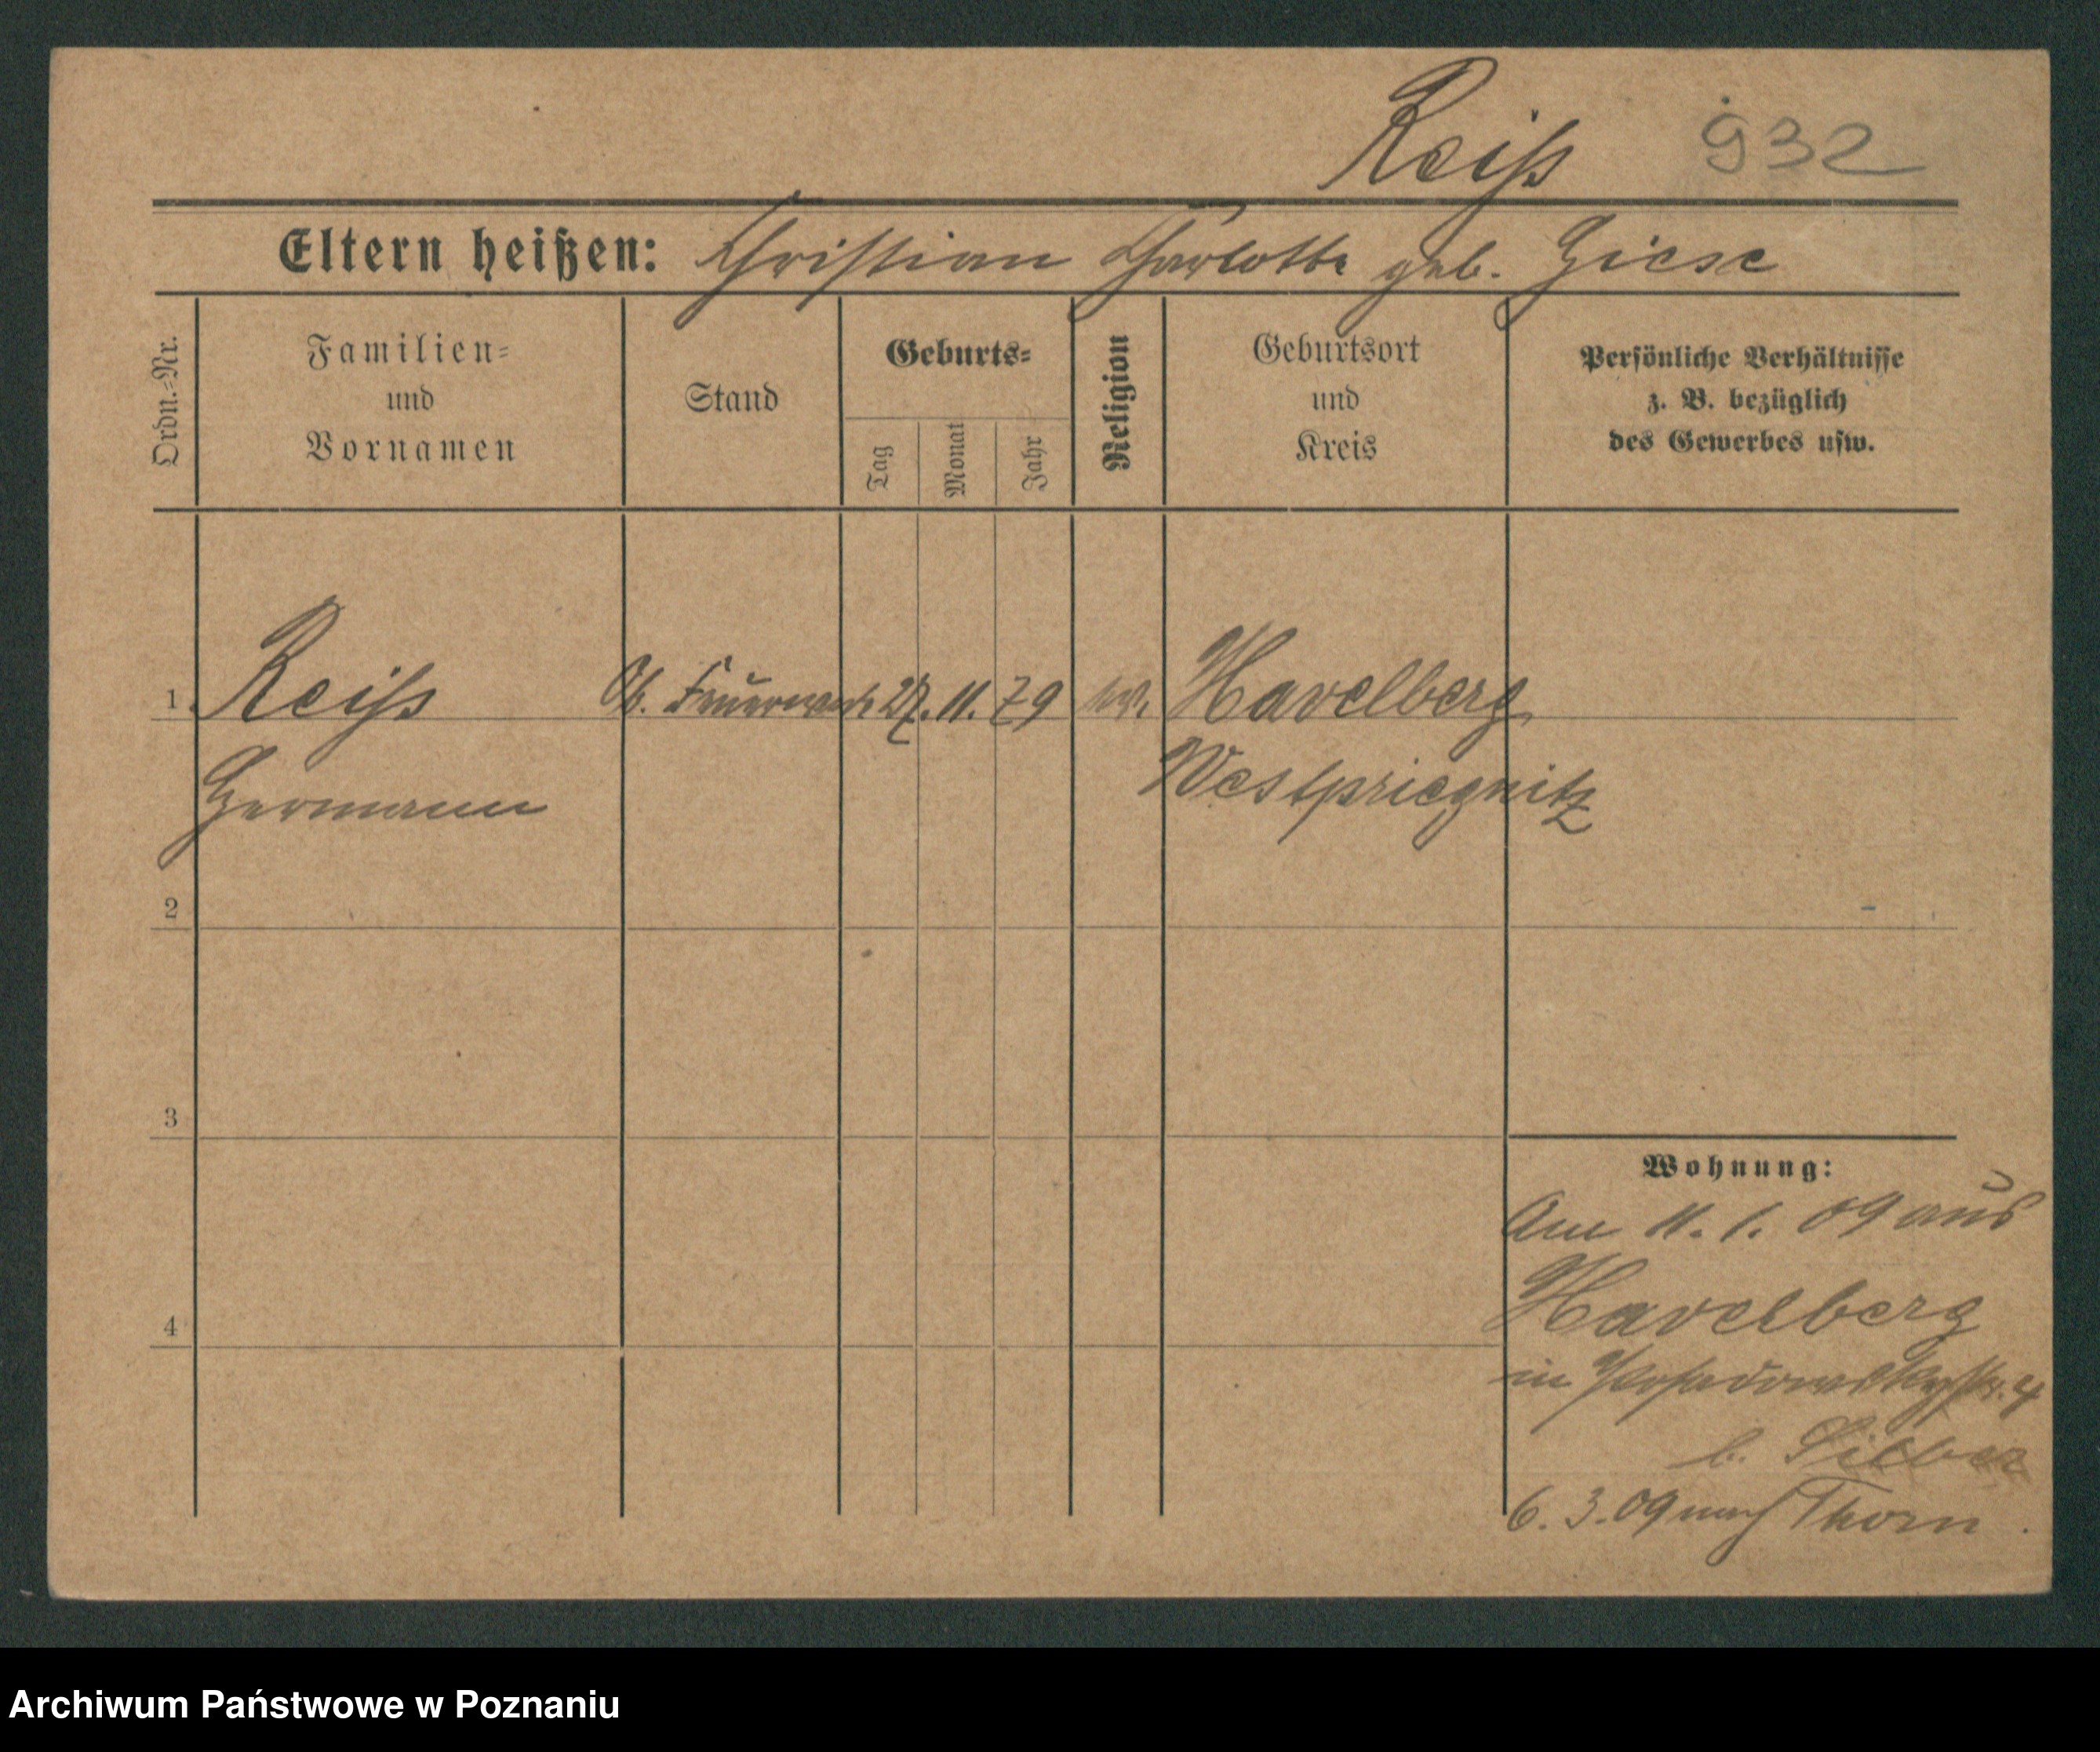 Reiß 932
Eltern heißen: Christian Charlotte geb. Giese
Ordn.-Nr.
Familien-
und
Vornamen
Stand
Geburts-
Tag
Monat
Jahr
Religion
Geburtsort
und
Kreis
Persönliche Verhältnisse
z. B. bezüglich
des Gewerbes usw.
1. Reiß Ob. Feuerwerk 27. 11. 79 ev. Havelberg
Hermann Westpriegnitz
2
3
Wohnung:
Am 11. 1. 09 aus
Havelberg
4
in Posadowskystr. 4
b. Silber
6. 3. 09 nach Thorn
Archiwum Państwowe w Poznaniu